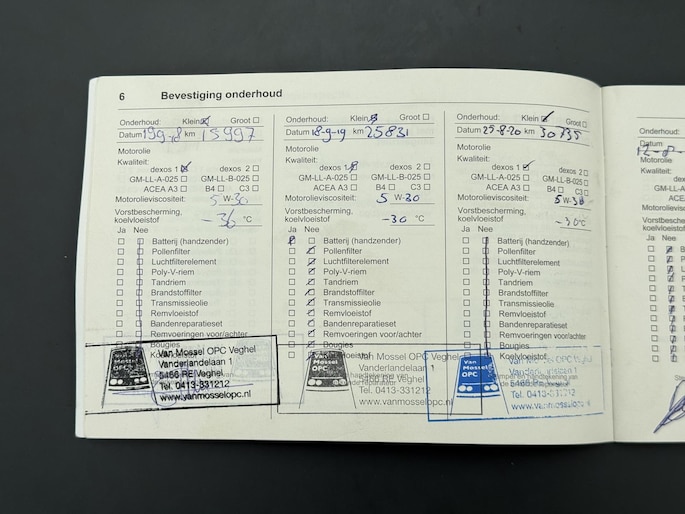 6 Bevestiging onderhoud
Onderhoud: Klein Groot
Datum 19-9-18 km 15997
Motorolie
Kwaliteit:
dexos 1 dexos 2
GM-LL-A-025 GM-LL-B-025
ACEA A3 B4 C3
Motorolieviscositeit: 5 W-30
Vorstbescherming,
koelvloeistof -36 °C
Ja Nee
Batterij (handzender)
Pollenfilter
Luchtfilterelement
Poly-V-riem
Tandriem
Brandstoffilter
Transmissieolie
Remvloeistof
Bandenreparatieset
Remvoeringen voor/achter
Bougies
Van Mossel OPC
Van Mossel OPC Veghel
Vanderlandelaan 1
5466 RE Veghel
Tel. 0413-331212
www.vanmosselopc.nl
Onderhoud: Klein Groot
Datum 18-9-19 km 25831
Motorolie
Kwaliteit:
dexos 1 dexos 2
GM-LL-A-025 GM-LL-B-025
ACEA A3 B4 C3
Motorolieviscositeit: 5 W-30
Vorstbescherming,
koelvloeistof -30 °C
Ja Nee
Batterij (handzender)
Pollenfilter
Luchtfilterelement
Poly-V-riem
Tandriem
Brandstoffilter
Transmissieolie
Remvloeistof
Bandenreparatieset
Remvoeringen voor/achter
Bougies
Van Mossel OPC
Van Mossel OPC Veghel
Vanderlandelaan 1
Veghel
Tel. 0413-331212
www.vanmosselopc.nl
Onderhoud: Klein Groot
Datum 25-8-20 km 30735
Motorolie
Kwaliteit:
dexos 1 dexos 2
GM-LL-A-025 GM-LL-B-025
ACEA A3 B4 C3
Motorolieviscositeit: 5 W-30
Vorstbescherming,
koelvloeistof -30°C
Ja Nee
Batterij (handzender)
Pollenfilter
Luchtfilterelement
Poly-V-riem
Tandriem
Brandstoffilter
Transmissieolie
Remvloeistof
Bandenreparatieset
Remvoeringen voor/achter
Bougies
Koelvloeistof
Van Mossel OPC
Tel. 0413-331212
www.vanmosselopc.nl
Onderhoud:
Datum
Motorolie
Kwaliteit:
GM-LL-A
ACEA
Motorolieviscosi
Vorstbescherm
koelvloeistof
Ja Nee